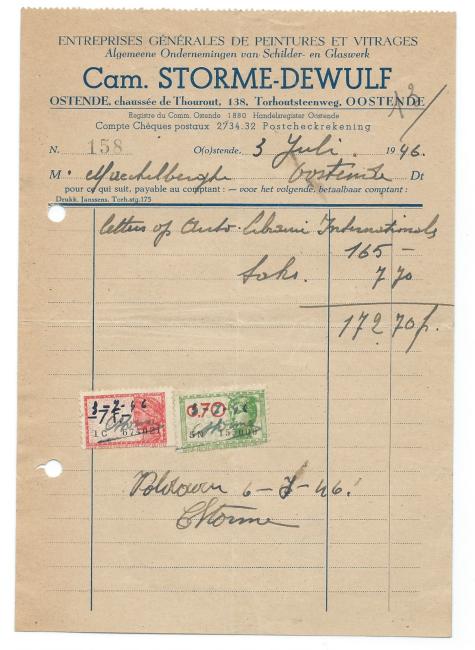 ENTREPRISES GÉNÉRALES DE PEINTURES ET VITRAGES
Algemeene Ondernemingen van Schilder- en Glaswerk
Cam. STORME-DEWULF
OSTENDE, chaussée de Thourout, 138, Torhoutsteenweg, OOSTENDE
Registre du Comm. Ostende 1880 Handelsregister Oostende
Compte Chèques postaux 2734.32 Postcheckrekening
N. 158 O(o)stende, 3 Juli 1946.
M. Maeckelberghe Oostende Dt
pour ce qui suit, payable au comptant : — voor het volgende, betaalbaar comptant :
Drukk. Janssens. Torh.stg.175
letters op Auto. Internationale
165 —
Taks. 7 70
172 70 f.
3-7-46
3-7-46
0,70
1C
5N
Voldaan 6-7-46.
CStorme